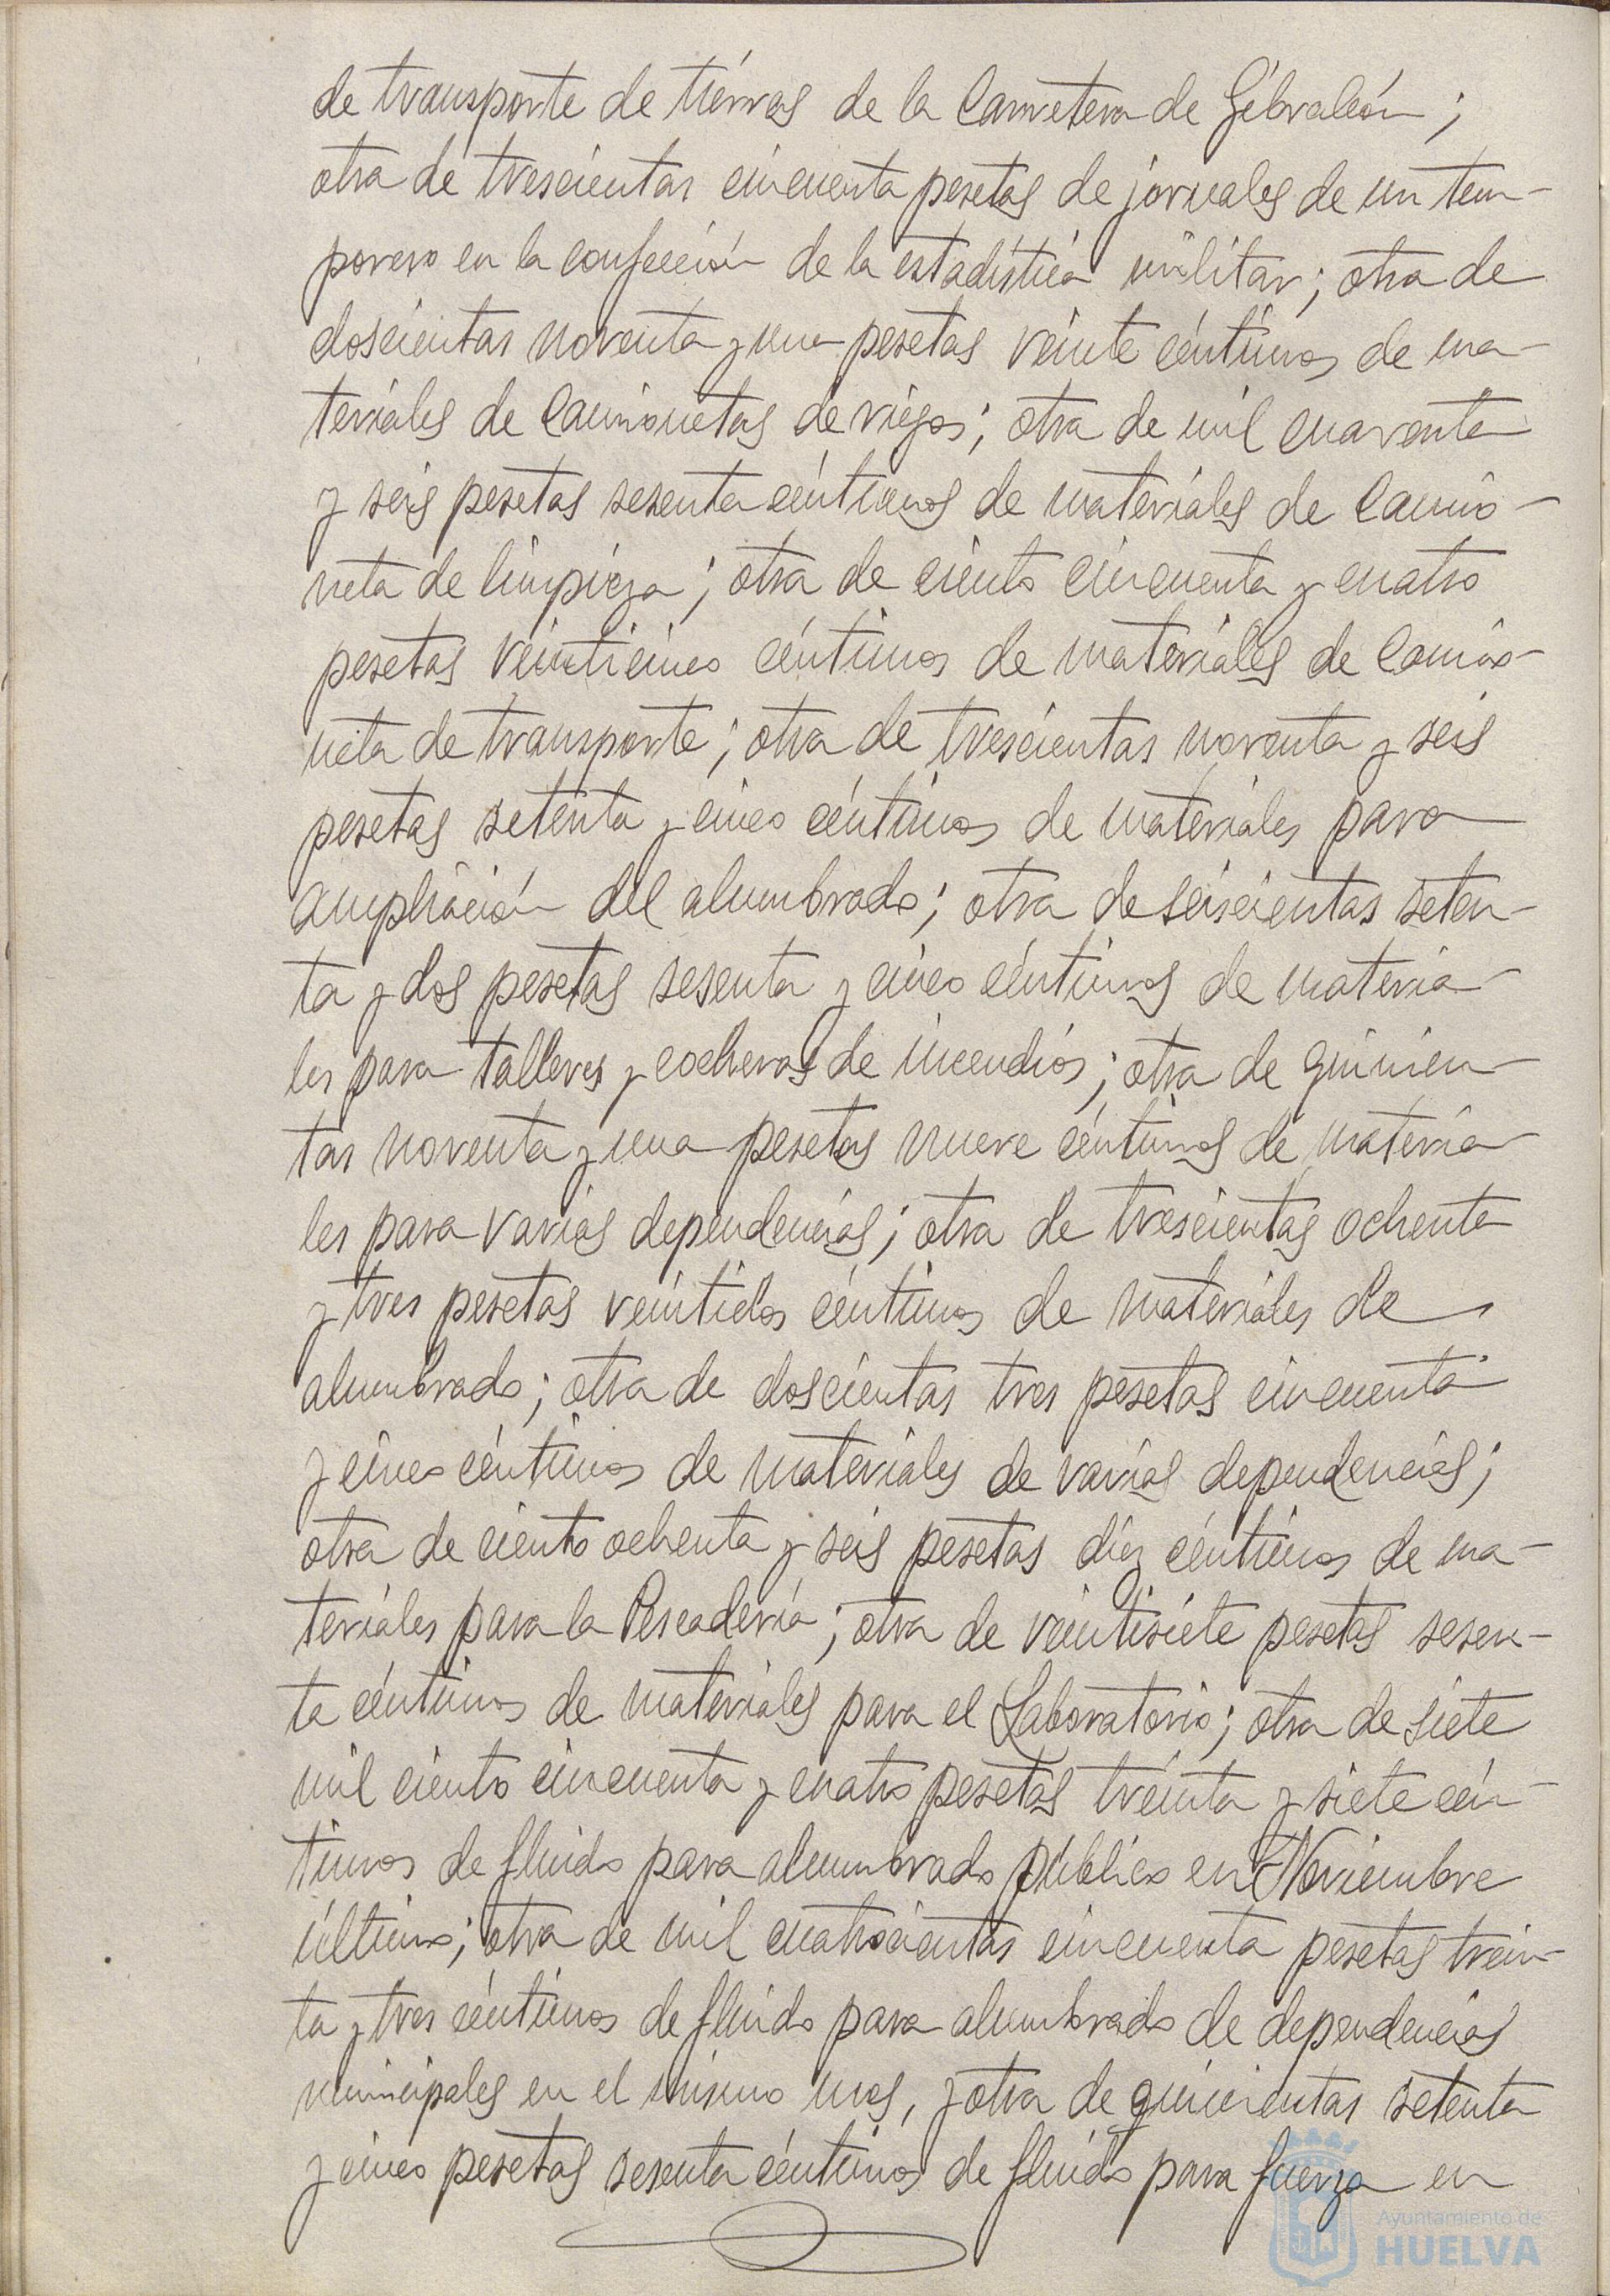 de transporte de tierras de la Carretera de Gibraleón;
otra de trescientas cincuenta pesetas de jornales de un tem-
porero en la confección de la estadística militar; otra de
doscientas noventa y una pesetas veinte céntimos de ma-
teriales de Camionetas de riegos; otra de mil cuarenta
y seis pesetas sesenta céntimos de materiales de Camio-
neta de limpieza; otra de ciento cincuenta y cuatro
pesetas veinticinco céntimos de materiales de Camio-
neta de transporte; otra de trescientas noventa y seis
pesetas setenta y cinco céntimos de materiales para
ampliación del alumbrado; otra de seiscientas seten-
ta y dos pesetas sesenta y cinco céntimos de materia-
les para talleres y cocheras de incendios; otra de quinien-
tas noventa y una pesetas nueve céntimos de materia-
les para varias dependencias; otra de trescientas ochenta
y tres pesetas veintidos céntimos de materiales de
alumbrado; otra de doscientas tres pesetas cincuenta
y cinco céntimos de materiales de varias dependencias;
otra de ciento ochenta y seis pesetas diez céntimos de ma-
teriales para la Pescadería; otra de veintisiete pesetas sesen-
ta céntimos de materiales para el Laboratorio; otra de siete
mil ciento cincuenta y cuatro pesetas treinta y siete cén-
timos de fluido para alumbrado público en Noviembre
último; otra de mil cuatrocientas cincuenta pesetas trein-
ta y tres céntimos de fluido para alumbrado de dependencias
municipales en el mismo mes, y otra de quinientas setenta
y cinco pesetas sesenta céntimos de fluido para fuerza en
Ayuntamiento de
HUELVA